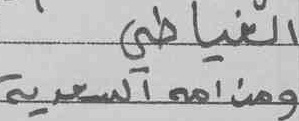 الغياضي
ومنذ امه السعدية